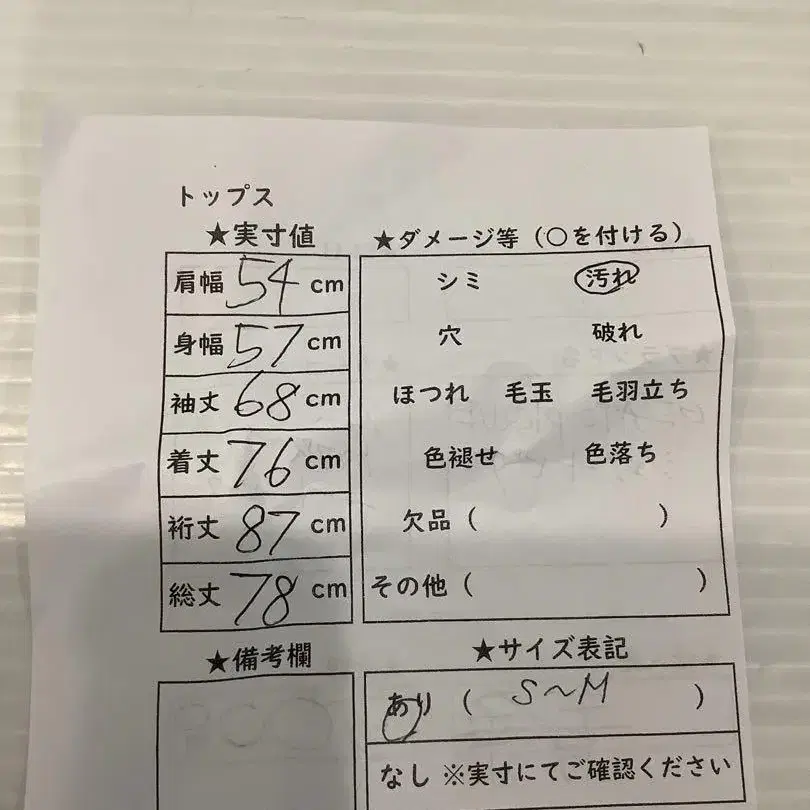 トップス
★実寸値
肩幅 54 cm
身幅 57 cm
袖丈 68 cm
着丈 76 cm
裄丈 87 cm
総丈 78 cm
★備考欄
★ダメージ等（○を付ける）
シミ 汚れ
穴 破れ
ほつれ 毛玉 毛羽立ち
色褪せ 色落ち
欠品（ ）
その他（ ）
★サイズ表記
あり（ S～M ）
なし ※実寸にてご確認ください